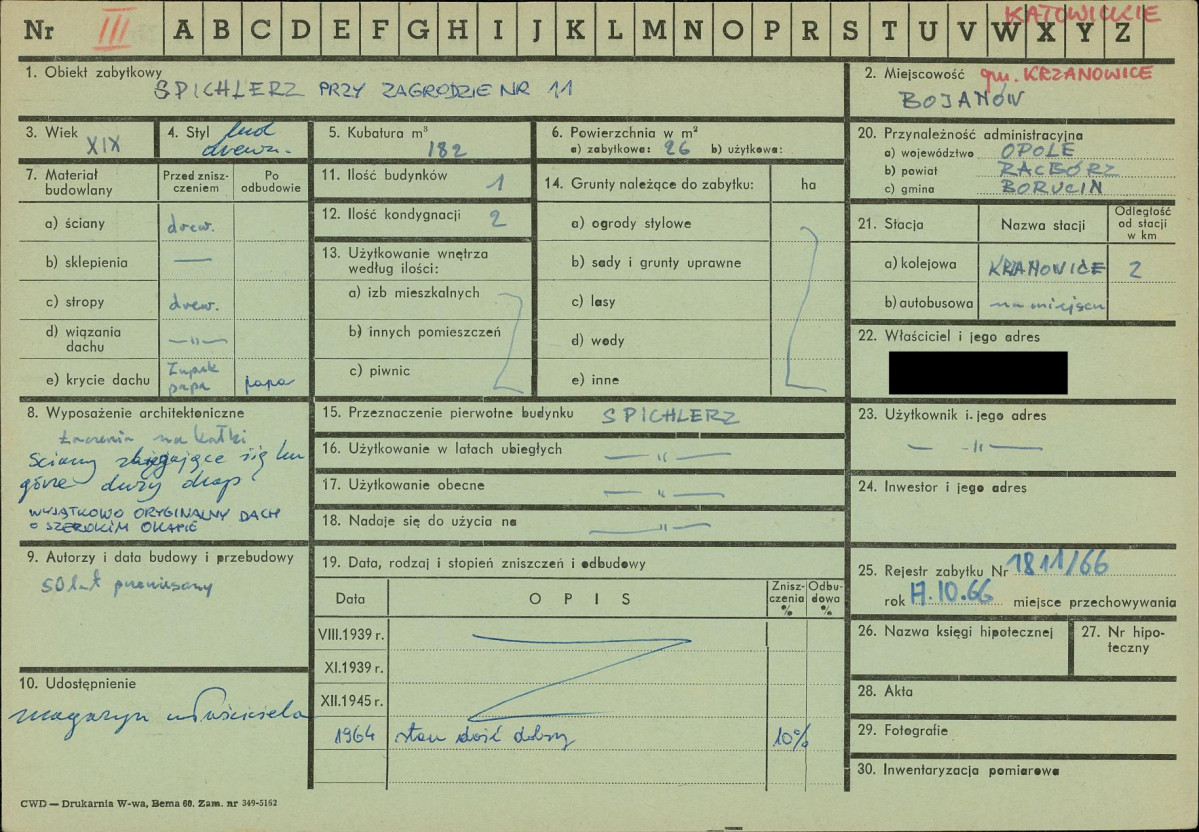 Nr III A B C D E F G H I J K L M N O P R S T U V W X Y Z
KATOWICKIE
1. Obiekt zabytkowy
SPICHLERZ PRZY ZAGRODZIE NR 11
2. Miejscowość gm. KRZANOWICE
BOJANÓW
3. Wiek
XIX
4. Styl lud
drewn.
5. Kubatura m³
182
6. Powierzchnia w m²
a) zabytkowa: 26 b) użytkowa:
20. Przynależność administracyjna
a) województwo OPOLE
b) powiat RACBÓRZ
c) gmina BORUCIN
7. Materiał budowlany
Przed znisz-
czeniem
Po
odbudowie
a) ściany drew.
b) sklepienia —
c) stropy drew.
d) wiązania
dachu —„—
e) krycie dachu
papa papa
11. Ilość budynków 1
12. Ilość kondygnacji 2
13. Użytkowanie wnętrza
według ilości:
a) izb mieszkalnych
b) innych pomieszczeń
c) piwnic
14. Grunty należące do zabytku: ha
a) ogrody stylowe
b) sady i grunty uprawne
c) lasy
d) wody
e) inne
21. Stacja Nazwa stacji
Odległość
od stacji
w km
a) kolejowa KRZANOWICE 2
b) autobusowa na miejscu
22. Właściciel i jego adres
8. Wyposażenie architektoniczne
ściany zbiegające się ku
górze duży okap
WYJĄTKOWO ORYGINALNY DACH
O SZEROKIM OKAPIE
15. Przeznaczenie pierwotne budynku SPICHLERZ
16. Użytkowanie w latach ubiegłych —„—
17. Użytkowanie obecne —„—
18. Nadaje się do użycia na —„—
23. Użytkownik i jego adres
— -„- —
24. Inwestor i jego adres
9. Autorzy i data budowy i przebudowy
50 lat
19. Data, rodzaj i stopień zniszczeń i odbudowy
Data O P I S
Znisz-
czenia
%
Odbu-
dowa
%
VIII.1939 r.
XI.1939 r.
XII.1945 r.
1964 stan dość dobry 10%
25. Rejestr zabytku Nr 1811/66
rok 17.10.66 miejsce przechowywania
26. Nazwa księgi hipotecznej
27. Nr hipo-
teczny
10. Udostępnienie
magazyn właściciela
28. Akta
29. Fotografie
30. Inwentaryzacja pomiarowa
CWD — Drukarnia W-wa, Bema 60. Zam. nr 349-5162